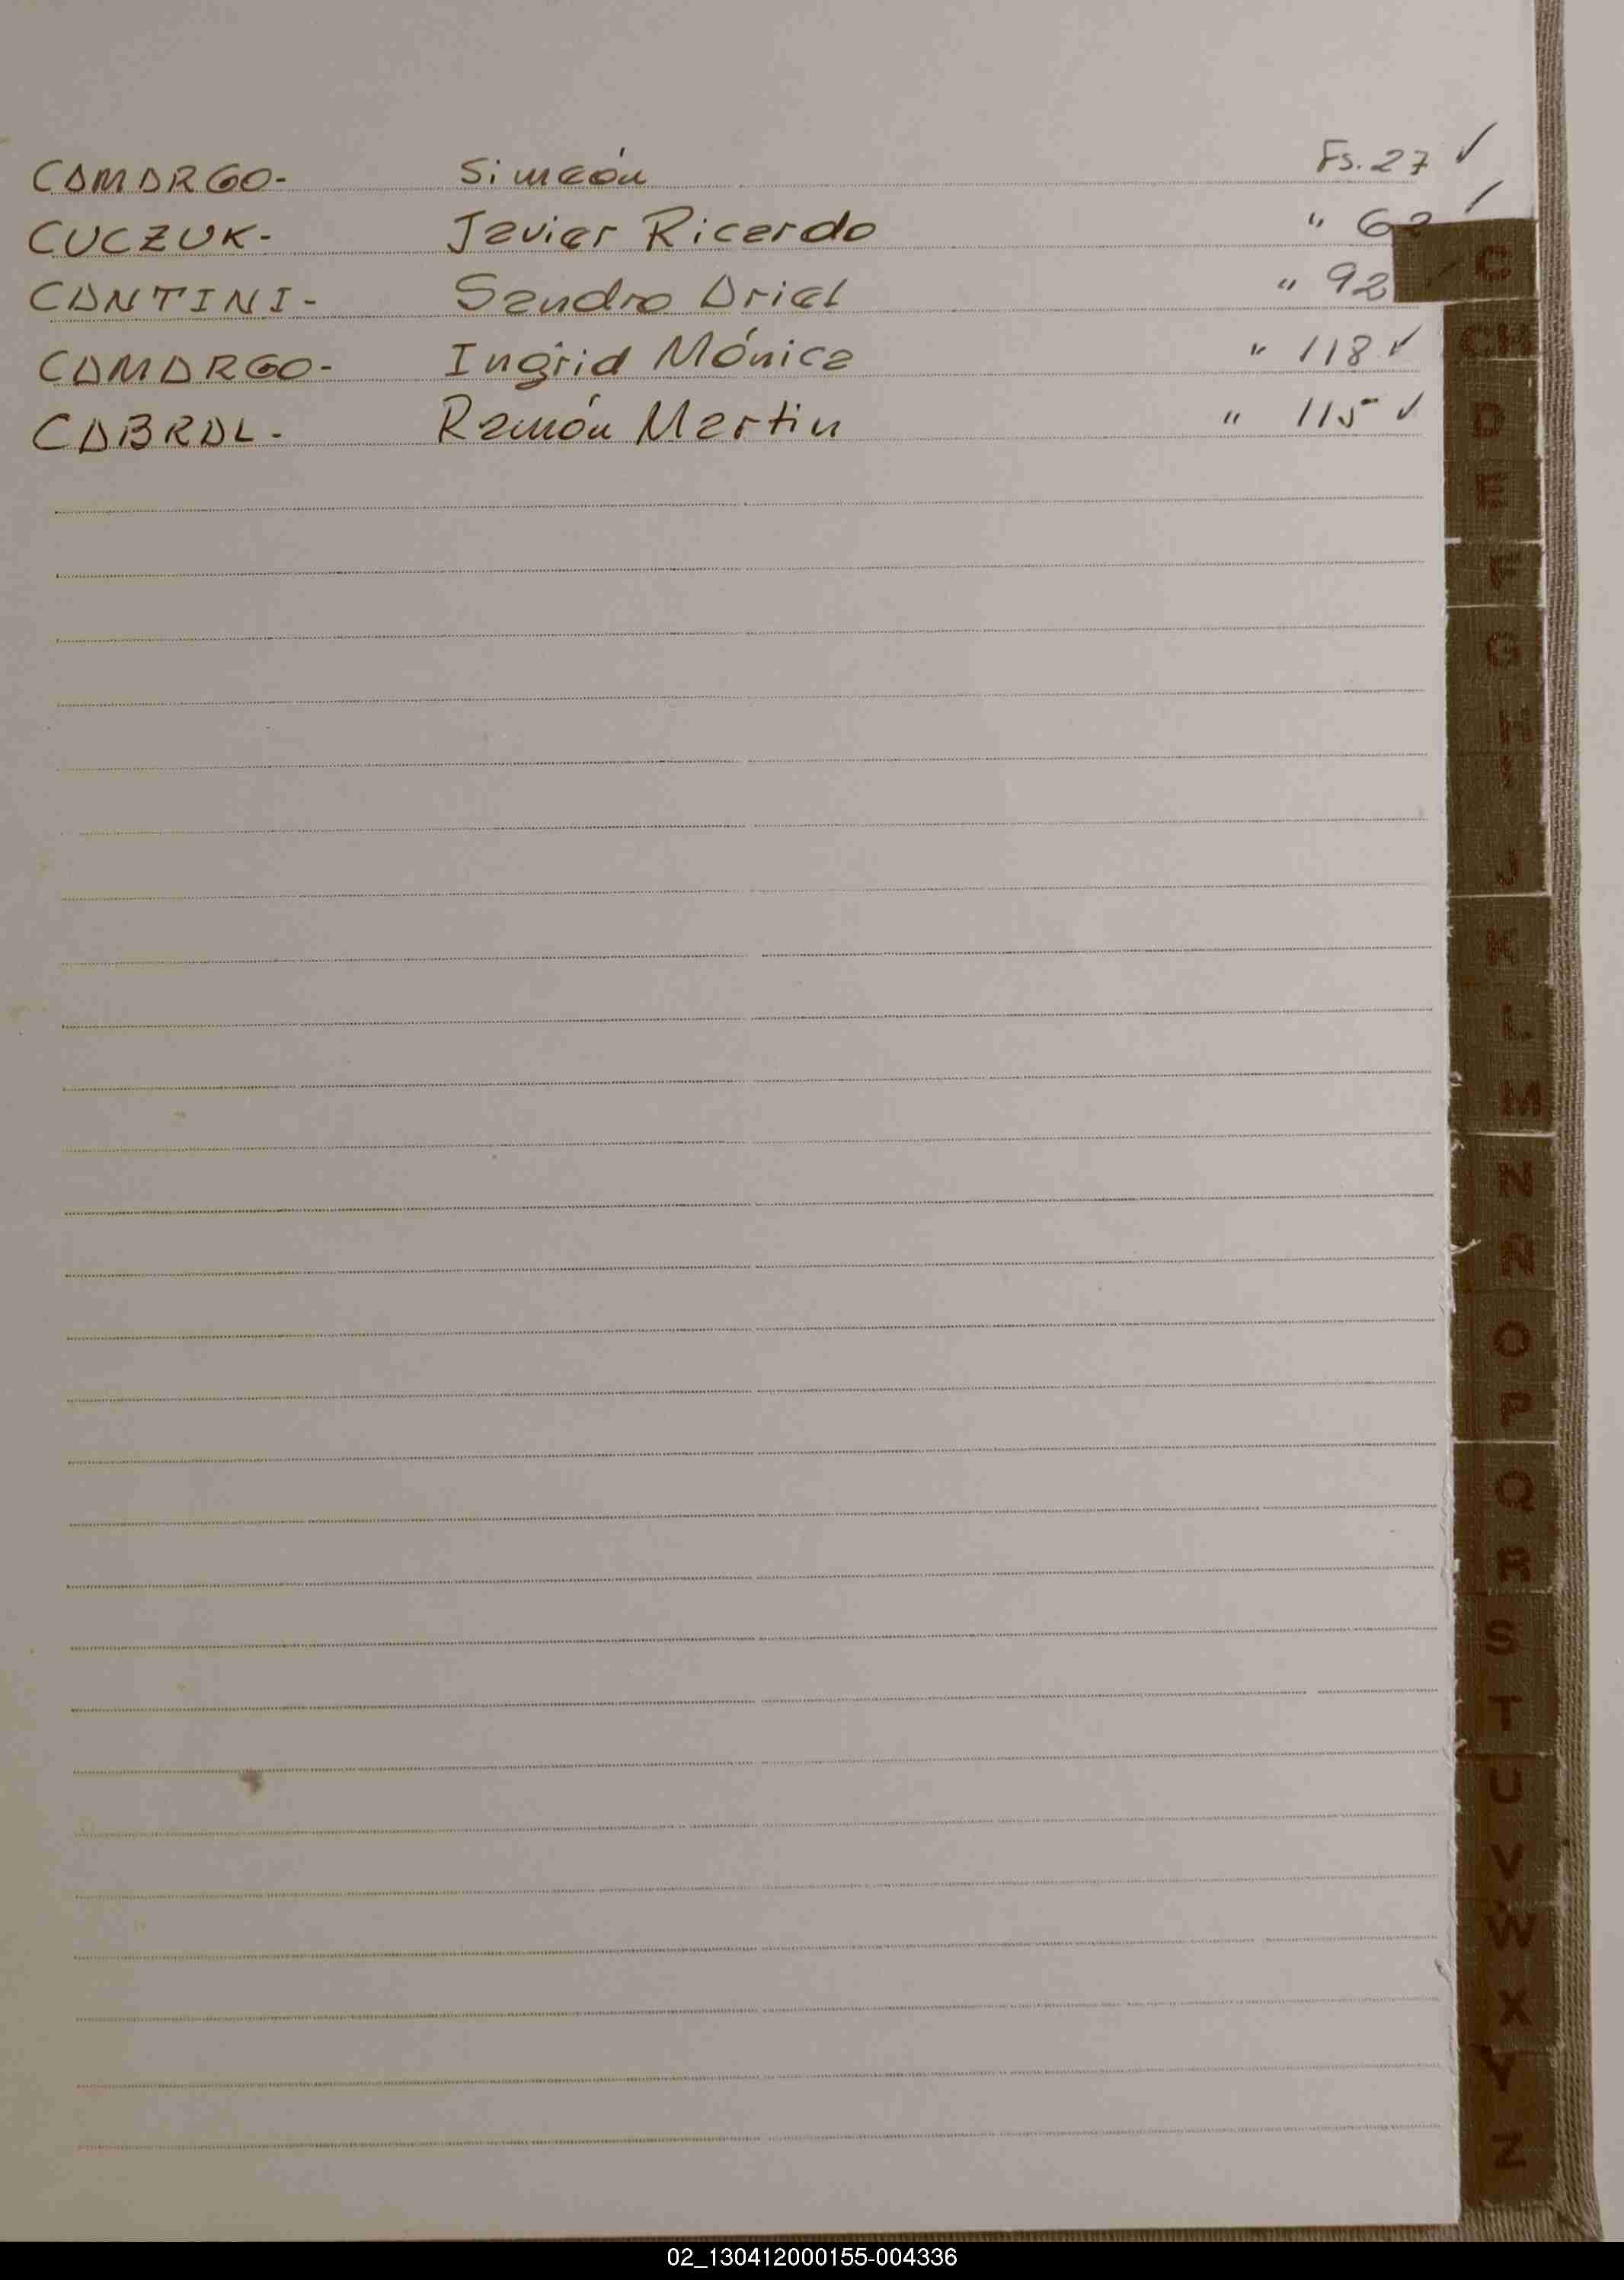 CAMARGO- Simeón Fs. 27 ✓
CUCZUK- Javier Ricardo " 62 ✓
CANTINI- Sandro Ariel " 92 ✓
CAMARGO- Ingrid Mónica " 118 ✓
CABRAL- Ramón Martin " 115 ✓
C
CH
D
E
F
G
H
I
J
K
L
M
N
Ñ
O
P
Q
R
S
T
U
V
W
X
Y
Z
02_130412000155-004336